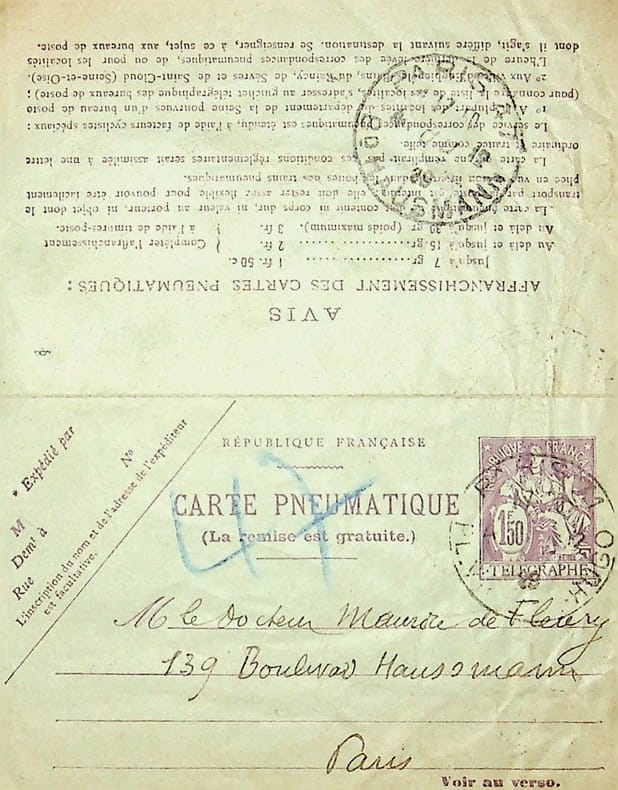 AVIS
AFFRANCHISSEMENT DES CARTES PNEUMATIQUES :
Jusqu'à 7 gr. 1 fr. 50 c.
Au delà et jusqu'à 15 gr. 2 fr. Compléter l'affranchissement
Au delà et jusqu'à 30 gr (poids maximum). 3 fr. à l'aide de timbres-poste.
La carte pneumatique contenir ni corps dur, ni valeur au porteur, ni objet dont le
transport par est interdit. Elle doit rester assez flexible pour pouvoir être facilement
pliée en vue de son insertion dans les boîtes des trains pneumatiques.
La carte ne remplissant pas les conditions réglementaires serait assimilée à une lettre
ordinaire et traitée comme telle.
Le service des correspondances pneumatiques est étendu, à l'aide de facteurs cyclistes spéciaux :
1° A la plupart des localités du département de la Seine pourvues d'un bureau de poste
(pour connaître la liste de ces localités, s'adresser au guichet télégraphique des bureaux de poste) ;
2° Aux villes d'Enghien-les-Bains, du Raincy, de Sèvres et de Saint-Cloud (Seine-et-Oise).
L'heure de dernière levée des correspondances pneumatiques, de ou pour les localités
dont il s'agit, diffère suivant la destination. Se renseigner, à ce sujet, aux bureaux de poste.
* Expédié par
M
Demt à
Rue
N°
L'inscription du nom et de l'adresse de l'expéditeur
est facultative.
RÉPUBLIQUE FRANÇAISE
CARTE PNEUMATIQUE
(La remise est gratuite.)
47
1F50
TÉLÉGRAPHE
M le Docteur Maurice de Fleury
139 Boulevard Haussmann
Paris
Voir au verso.